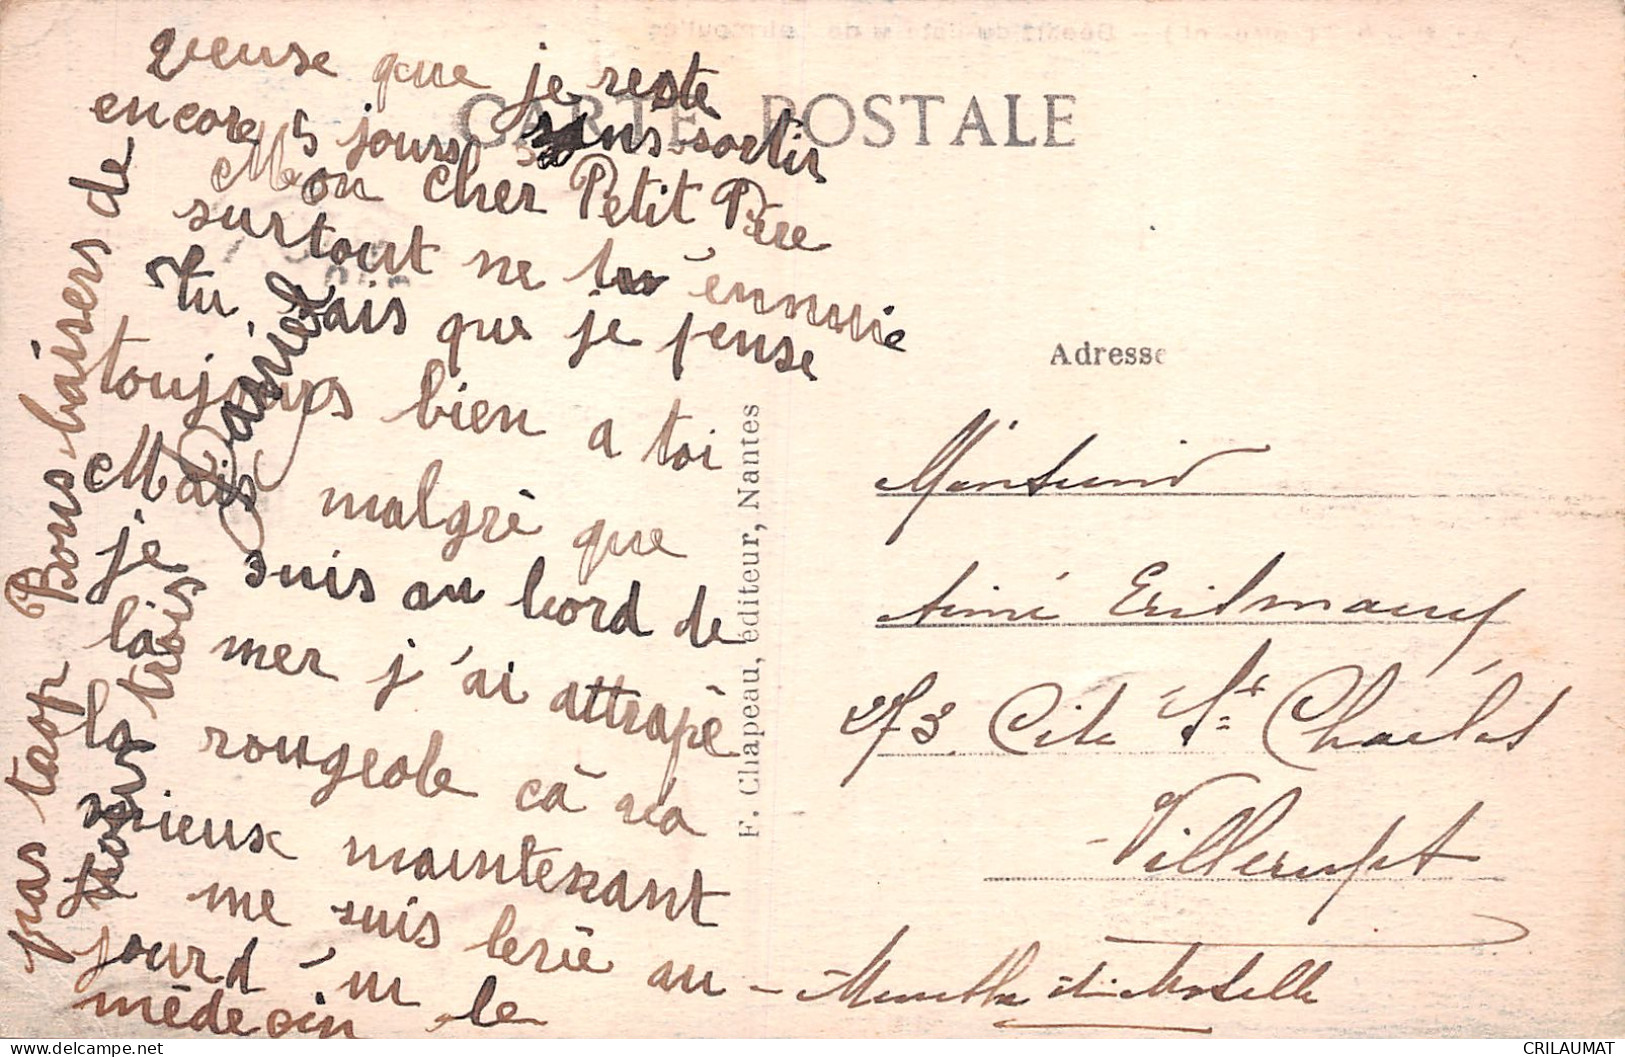 veuse que je reste
encore 5 jours sans sortir
Mon cher Petit Père
surtout ne tu ennuie
Tu sais que je pense
toujours bien a toi
Mais malgré que
je suis au bord de
la mer j'ai attrapé
la rougeole cà va
mieux maintenant
je me suis levé au
jourd'ui le
médecin
pas trop Bons baisers de
tous trois
Daniel
CARTE POSTALE
F. Chapeau, éditeur, Nantes
Adresse
Monsieur
Aimé
273 Cité St Charles
Villerupt
Meurthe et Moselle
CRILAUMAT